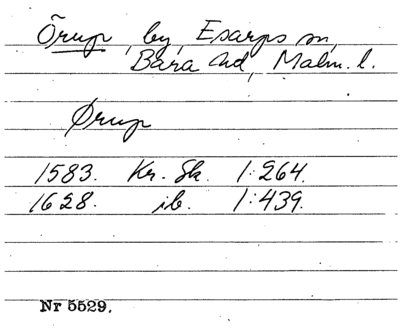 Õrup, by, Esarps sn,
Bara hd, Malm. l.
Ørup
1583. Kr. Sk. 1:264.
1628. ib. 1:439.
Nr 5529.